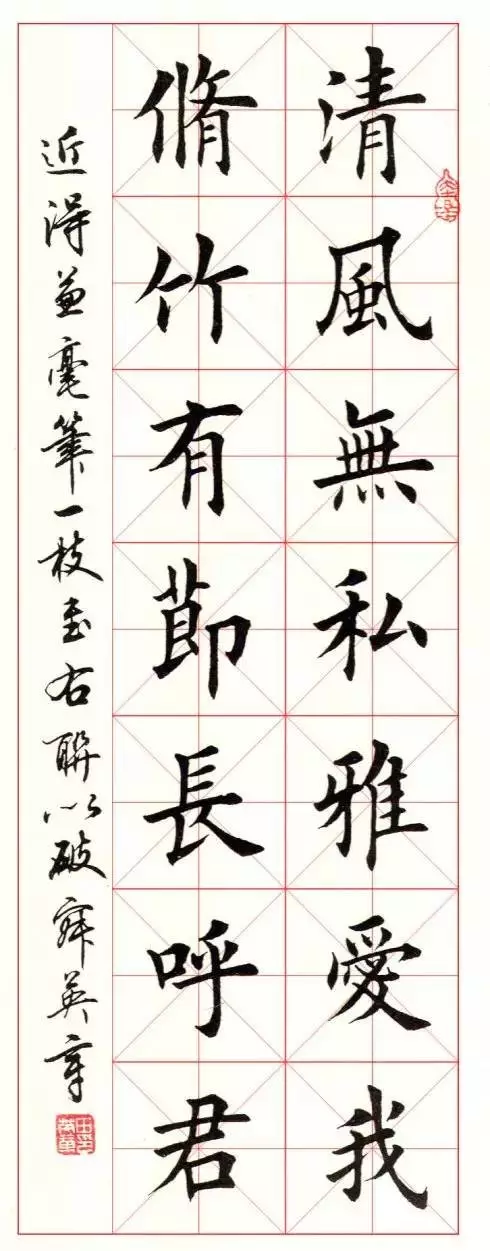 清風無私雅愛我
脩竹有莭長呼君
近得兼毫筆一枝書右聯以破寂英章